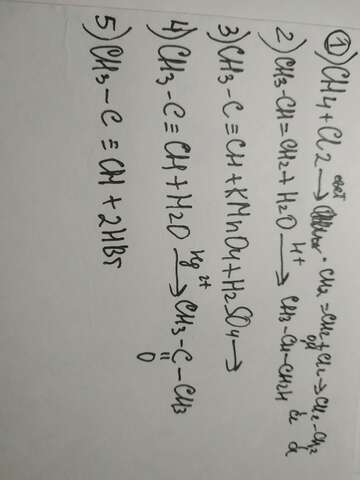 1) CH4 + Cl2 свет → • CH2 = CH2 + Cl2 → CH2 - CH2
Cl Cl
OH
2) CH3-CH=CH2 + H2O H+ → CH3-CH-CH2H
3) CH3 - C ≡ CH + KMnO4 + H2SO4 →
4) CH3 - C ≡ CH + H2O Hg2+ → CH3 - C - CH3
O
5) CH3 - C ≡ CH + 2HBr